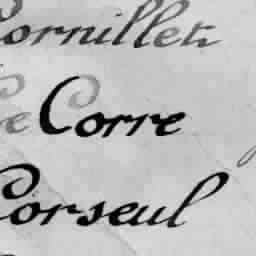 Cornillet
Le Corre
Corseul